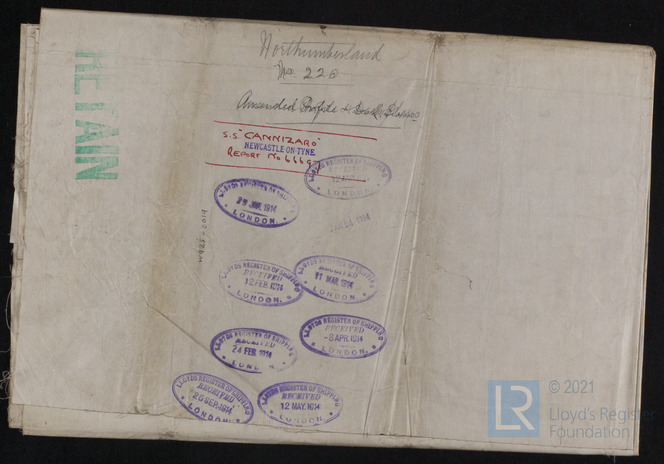 RETAIN
Northumberland
No. 220
Amended Profile & Deck Plans
S.S "CANNIZARO"
NEWCASTLE-ON-TYNE
REPORT No 6669
LLOYDS REGISTER OF SHIPPING
RECEIVED
LONDON.
1914
LONDON.
W925-0019
LLOYDS REGISTER OF SHIPPING
RECEIVED
12 FEB. 1914
LONDON.
LLOYDS REGISTER OF SHIPPING
RECEIVED
11 MAR. 1914
LONDON.
LLOYDS REGISTER OF SHIPPING
RECEIVED
24 FEB. 1914
LLOYDS REGISTER OF SHIPPING
RECEIVED
-8 APR. 1914
LONDON.
LLOYDS REGISTER OF SHIPPING
RECEIVED
26 SEP. 1914
LONDON.
LLOYDS REGISTER OF SHIPPING
RECEIVED
12 MAY. 1914
LONDON.
LR
© 2021
Lloyd's Register
Foundation